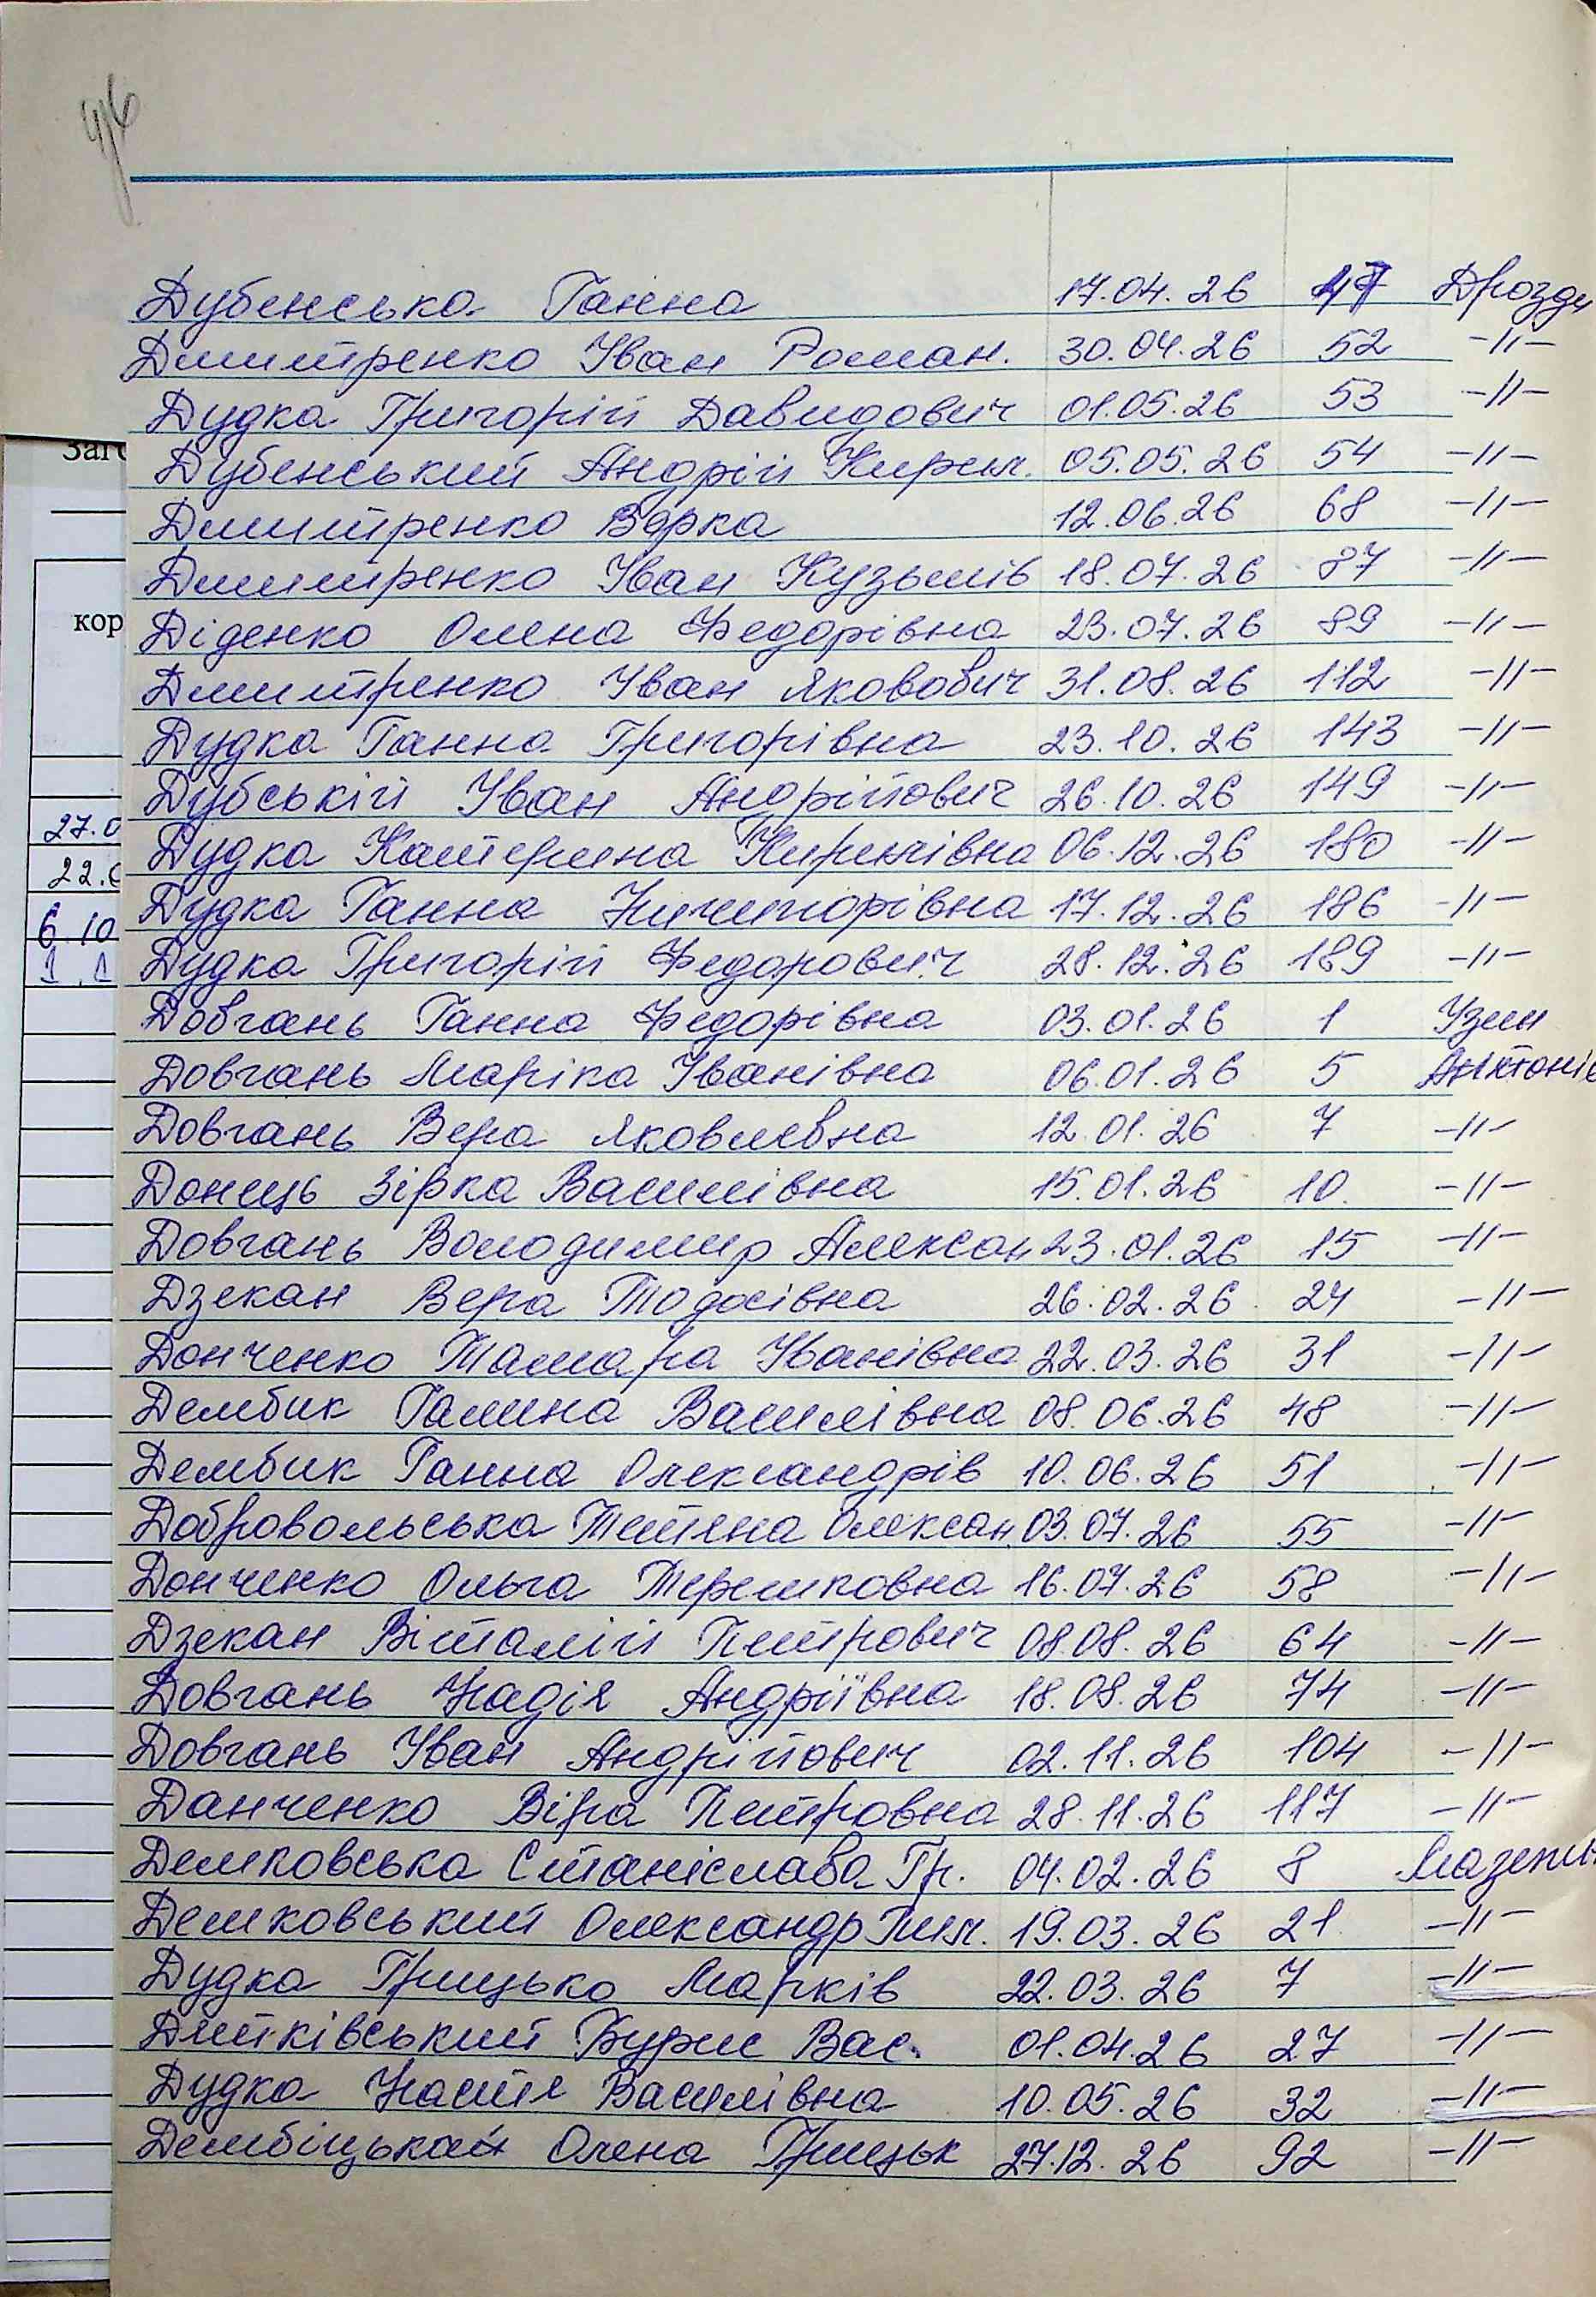 46
Дубенська Ганна 17.04.26 47 Дрозди
Дмитренко Іван Роман. 30.04.26 52 -//-
Дудка Григорій Давидович 01.05.26 53 -//-
Дубенський Андрій Кирил. 05.05.26 54 -//-
Дмитренко Вєрка 12.06.26 68 -//-
Дмитренко Іван Кузьмів 18.07.26 87 -//-
Діденко Олена Федорівна 23.07.26 89 -//-
Дмитренко Іван Яковович 31.08.26 112 -//-
Дудка Ганна Григорівна 23.10.26 143 -//-
Дубській Іван Андрійович 26.10.26 149 -//-
Дудка Катерина Кирилівна 06.12.26 180 -//-
Дудка Ганна Ничипорівна 17.12.26 186 -//-
Дудка Григорій Федорович 28.12.26 189 -//-
Довгань Ганна Федорівна 03.01.26 1 Узин
Довгань Маріка Іванівна 06.01.26 5 Антонів
Довгань Вера Яковлевна 12.01.26 7 -//-
Донець Зірка Василівна 15.01.26 10. -//-
Довгань Володимир Алексан 23.01.26 15 -//-
Дзекан Вера Тодосівна 26.02.26 24 -//-
Донченко Тамара Іванівна 22.03.26 31 -//-
Дембик Галина Василівна 08.06.26 48 -//-
Дембик Ганна Олександрів 10.06.26 51 -//-
Добровольська Тетяна Олексан. 03.07.26 55 -//-
Донченко Ольга Терешковна 16.07.26 58 -//-
Дзекан Віталій Петрович 08.08.26 64 -//-
Довгань Надія Андріївна 18.08.26 74 -//-
Довгань Іван Андрійович 02.11.26 104 -//-
Данченко Віра Петровна 28.11.26 117 -//-
Демковська Станіслава Гр. 04.02.26 8 Мазепи
Демковський Олександр Пил. 19.03.26 21 -//-
Дудка Грицько Марків 22.03.26 7 -//-
Дитківський Бурис Вас. 01.04.26 27 -//-
Дудка Настя Василівна 10.05.26 32 -//-
Дембіцька Олена Грицьк 27.12.26 92 -//-
Заго
кор
27.0
22.0
6 10
1.1